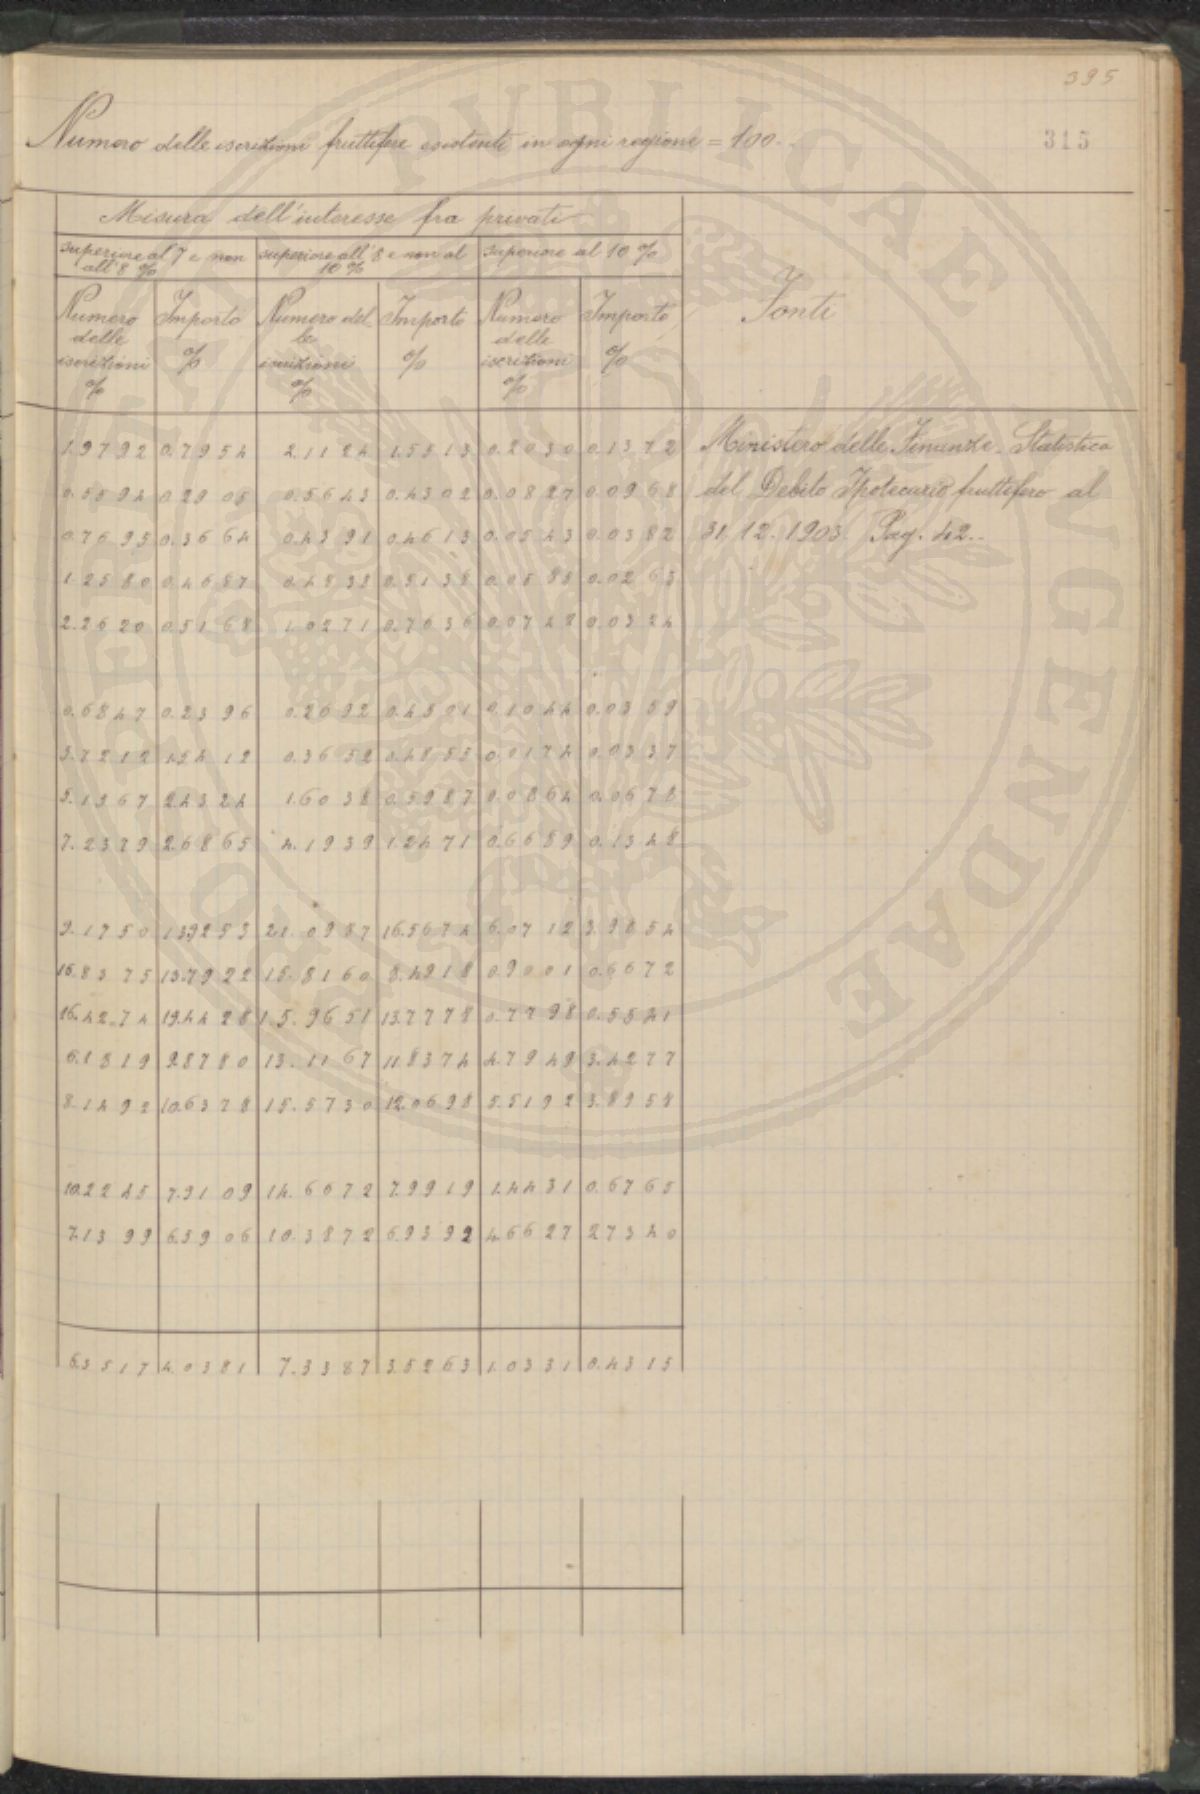 395
315
Numero delle iscrizioni fruttifere esistenti in ogni regione = 100.
Misura dell'interesse fra privati
superiore al 7 e non all'8 %
superiore all'8 e non al 10 %
superiore al 10 %
Fonti
Numero delle iscrizioni %
Importo %
Numero delle iscrizioni %
Importo %
Numero delle iscrizioni %
Importo %
1.9792 0.7954 2.1124 1.5513 0.2030 0.1372
0.5594 0.2905 0.5643 0.4302 0.0827 0.0968
0.7695 0.3664 0.4391 0.4613 0.0543 0.0382
1.2580 0.4687 0.4838 0.5138 0.0585 0.0263
2.2620 0.5168 1.0271 0.7636 0.0748 0.0324
0.6847 0.2396 0.2692 0.4501 0.1044 0.0359
3.7212 1.5412 0.3652 0.4855 0.0174 0.0337
5.1367 2.4324 1.6038 0.5987 0.0864 0.0678
7.2379 2.6865 4.1939 1.2471 0.6689 0.1348
9.1750 13.9253 21.0957 16.5674 6.0712 3.9854
16.8375 13.7922 15.8160 8.4918 0.9001 0.6672
16.4274 19.4428 15.9651 13.7778 0.7798 0.5541
6.1519 9.8780 13.1167 11.8374 4.7949 3.4277
8.1492 10.6378 15.5730 12.0698 5.5192 3.8958
10.2245 7.9109 14.6672 7.9919 1.4431 0.6765
7.1399 6.5906 10.3872 6.9392 4.6627 2.7340
6.3517 4.0381 7.3387 3.5263 1.0331 0.4315
Ministero delle Finanze. Statistica
del Debito Ipotecario fruttifero al
31. 12. 1903. Pag. 42.
PUBLICAE
LUGENDAE